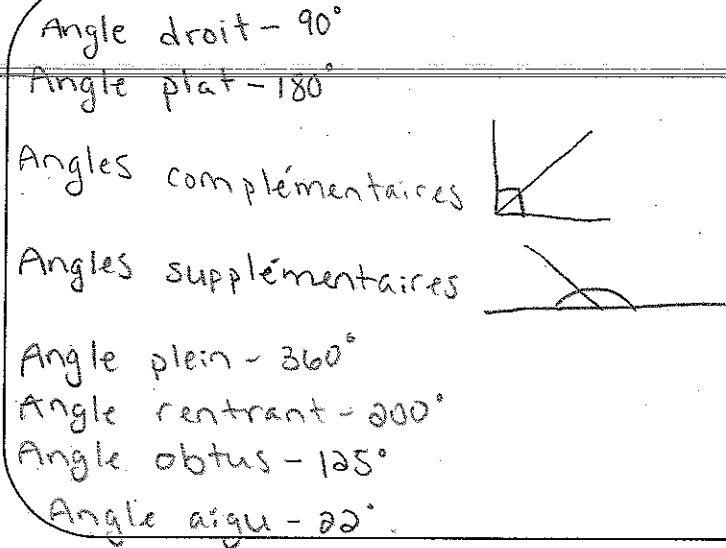 Angle droit - 90°
Angle plat - 180°
Angles complémentaires
Angles supplémentaires
Angle plein - 360°
Angle rentrant - 200°
Angle obtus - 125°
Angle aigu - 22°.